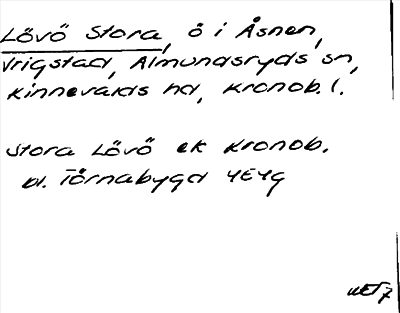 Lövö Stora, ö i Åsnen,
Vrigstad, Almundsryds sn,
Kinnevalds hd, Kronob. l.
Stora Lövö ek Kronob.
bl. Törnabygd 4E4g